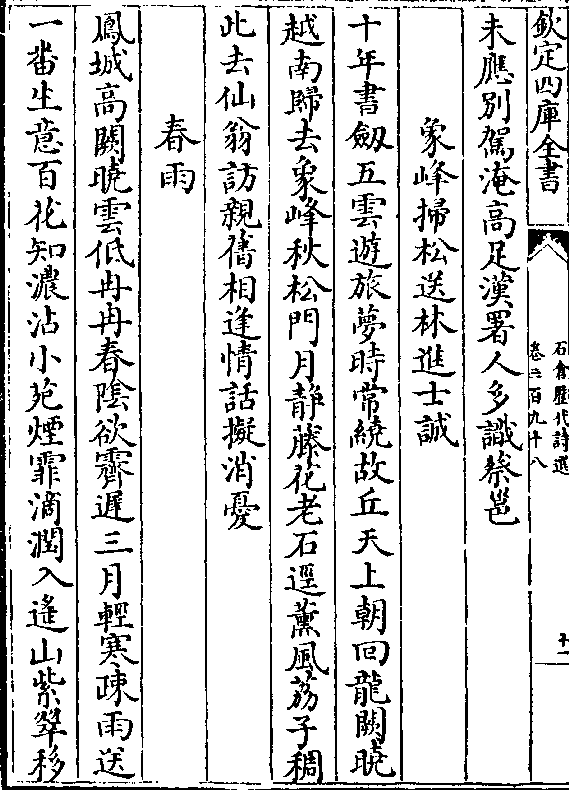 欽定四庫全書
石倉歷代詩選
卷三百九十八
十一
未應别駕淹高足漢署人多識蔡邕
象峰掃松送林進士誠
十年書劔五雲遊旅夢時常繞故丘天上朝回龍闕曉
越南歸去象峰秋松門月靜藤花老石逕薰風荔子稠
此去仙翁訪親舊相逢情話擬消憂
春雨
鳳城高闕曉雲低冉冉春陰欲霽遲三月輕寒疎雨送
一番生意百花知濃沾小苑煙霏滴潤入遙山紫翠移